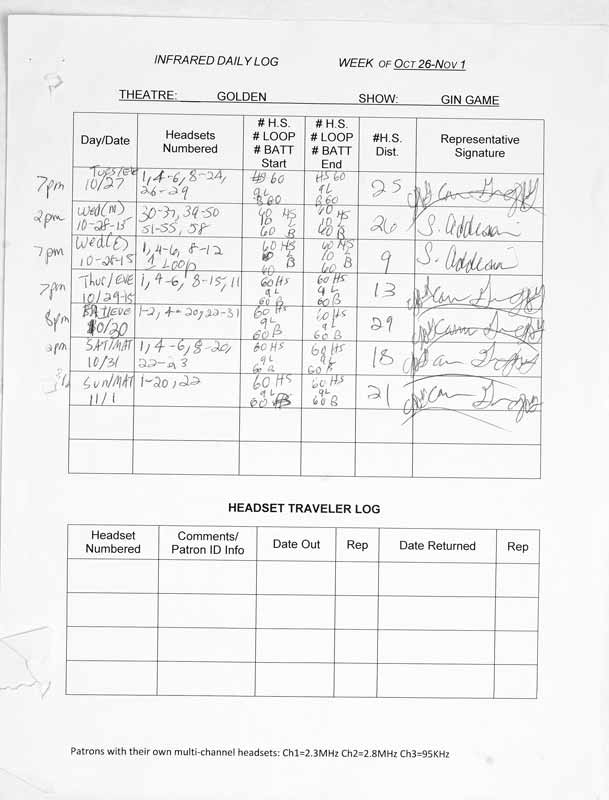 INFRARED DAILY LOG WEEK OF OCT 26-NOV 1
THEATRE: GOLDEN SHOW: GIN GAME
Day/Date Headsets Numbered # H.S. # LOOP # BATT Start # H.S. # LOOP # BATT End #H.S. Dist. Representative Signature
7pm Tues/Eve 10/27 1, 4-6, 8-24, 26-29 HS 60 9L B60 HS 60 9L B60 25
2pm Wed(M) 10-28-15 30-37, 39-50 51-55, 58 60 HS 10 L 60 B 60 HS 10 L 60 B 26 S. Addeson
7pm Wed(E) 10-28-15 1, 4-6, 8-12 1 Loop 60 HS 10 L 60 B 60 HS 10 L 60 B 9 S. Addeson
7pm Thur/EVE 10/29-15 1, 4-6, 8-15, 11 60 HS 9L 60 B 60 HS 9L 60 B 13
8pm /EVE 1-2, 4-20, 22-31 60 HS 9L 60 B 60 HS 9L 60 B 29
2pm SAT/MAT 10/31 1, 4-6, 8-20, 22-23 60 HS 9L 60 B 60 HS 9L 60 B 18
SUN/MAT 11/1 1-20, 22 60 HS 9L 60 60 HS 9L 60 B 21
HEADSET TRAVELER LOG
Headset Numbered Comments/ Patron ID Info Date Out Rep Date Returned Rep
Patrons with their own multi-channel headsets: Ch1=2.3MHz Ch2=2.8MHz Ch3=95KHz